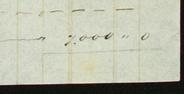 7,000 " 0